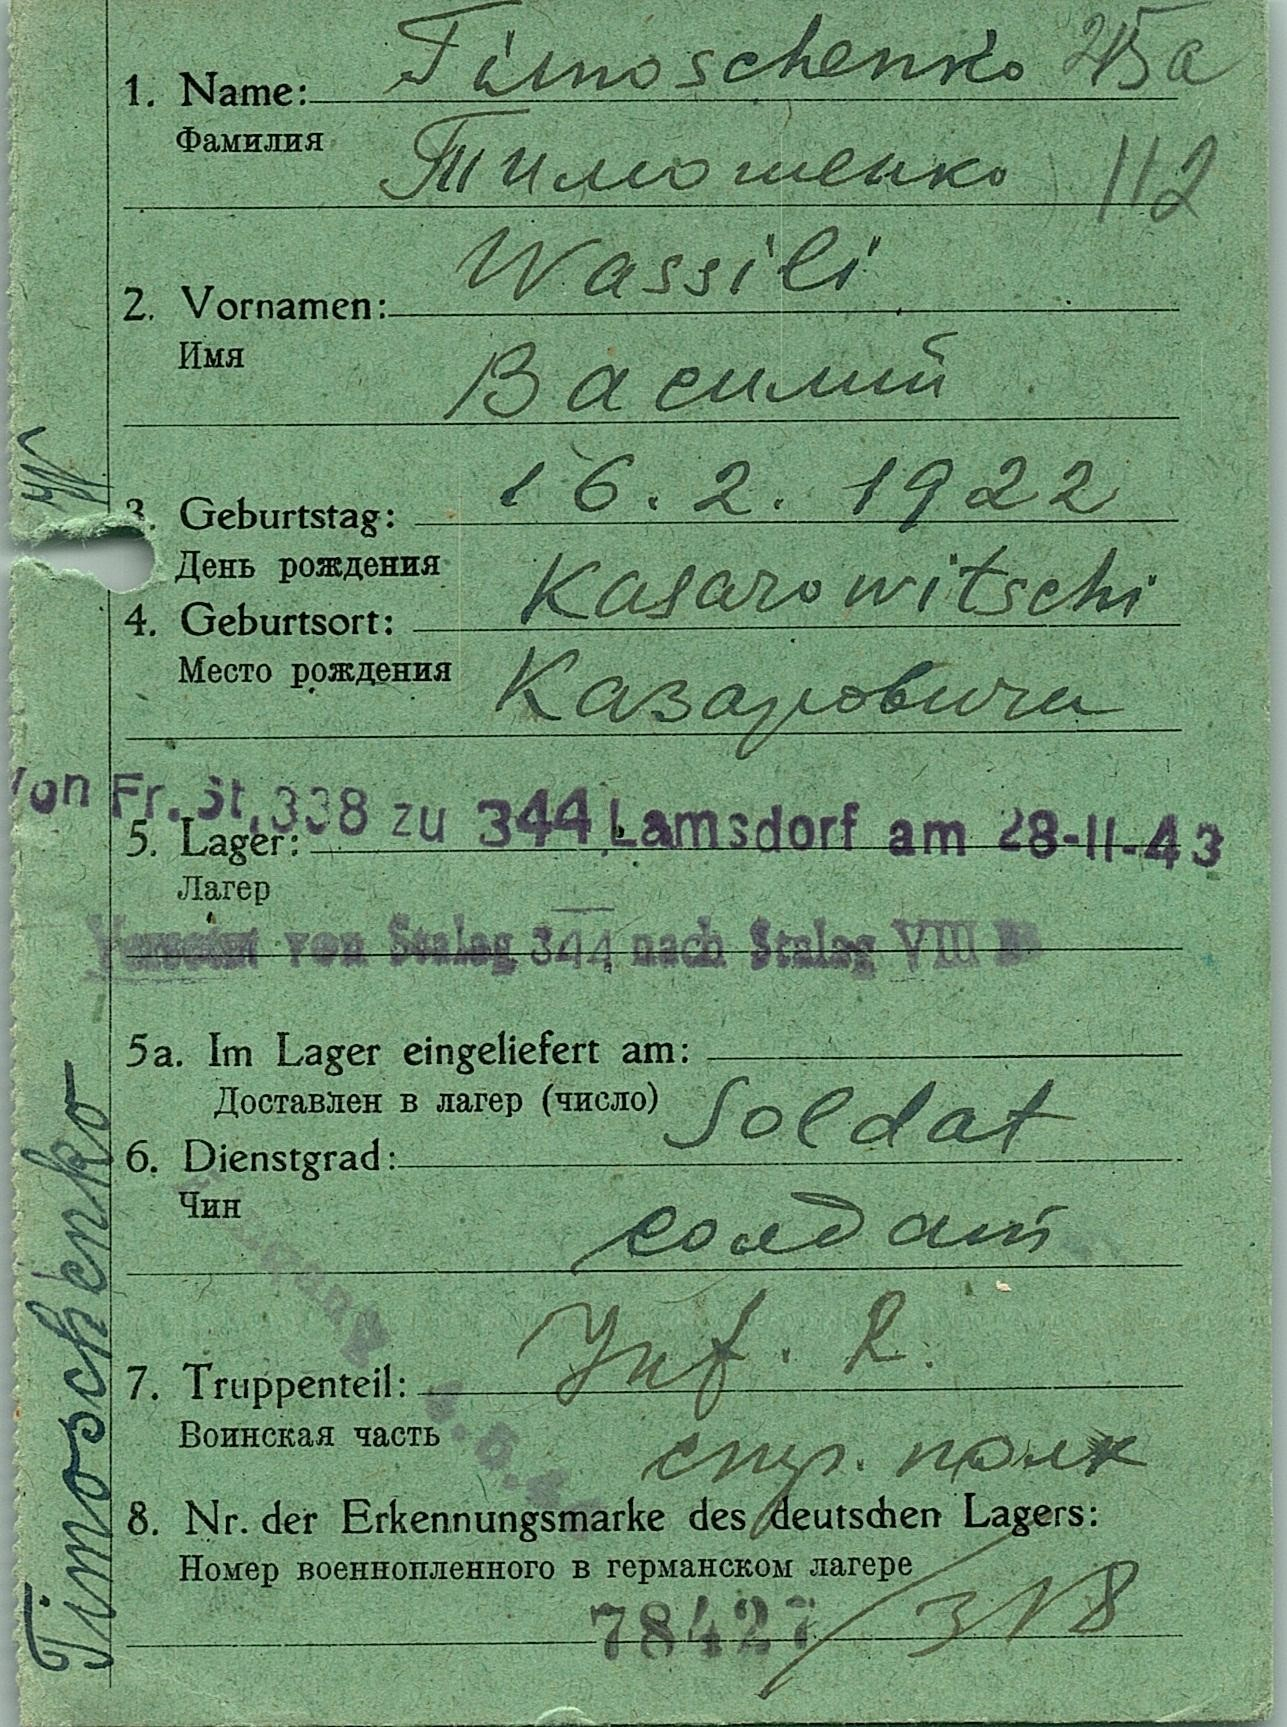 1. Name: Timoschenko
Фамилия Тимошенко 112
Wassili
2. Vornamen:
Имя
Василий
16.2.1922
3. Geburtstag:
День рождения
Kasarowitschi
4. Geburtsort:
Место рождения
Казаровичи
von Fr. St. 338 zu 344 Lamsdorf am 28-11-43
5. Lager:
Лагер
Versetzt von Stalag 344 nach Stalag VIII B
5a. Im Lager eingeliefert am:
Доставлен в лагер (число)
Soldat
6. Dienstgrad:
Чин
солдат
Inf. R.
7. Truppenteil:
Воинская часть
стр. полк
8. Nr. der Erkennungsmarke des deutschen Lagers:
Номер военнопленного в германском лагере
78427 / 318
Timoschenko W